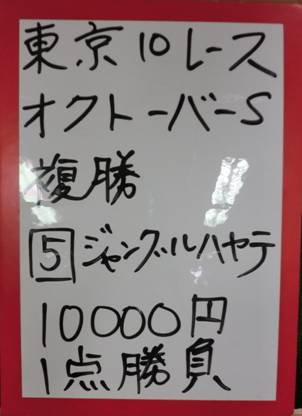 東京10レース
オクトーバーS
複勝
5 ジャングルハヤテ
10000円
1点勝負